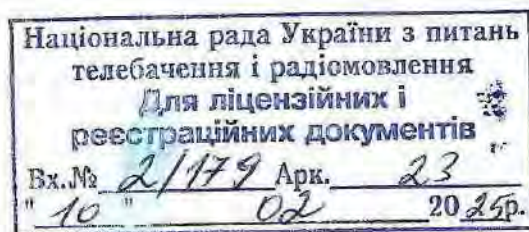 Національна рада України з питань
телебачення і радіомовлення
Для ліцензійних і
реєстраційних документів
Вх.№ 2/179 Арк. 23
"10" 02 2025р.